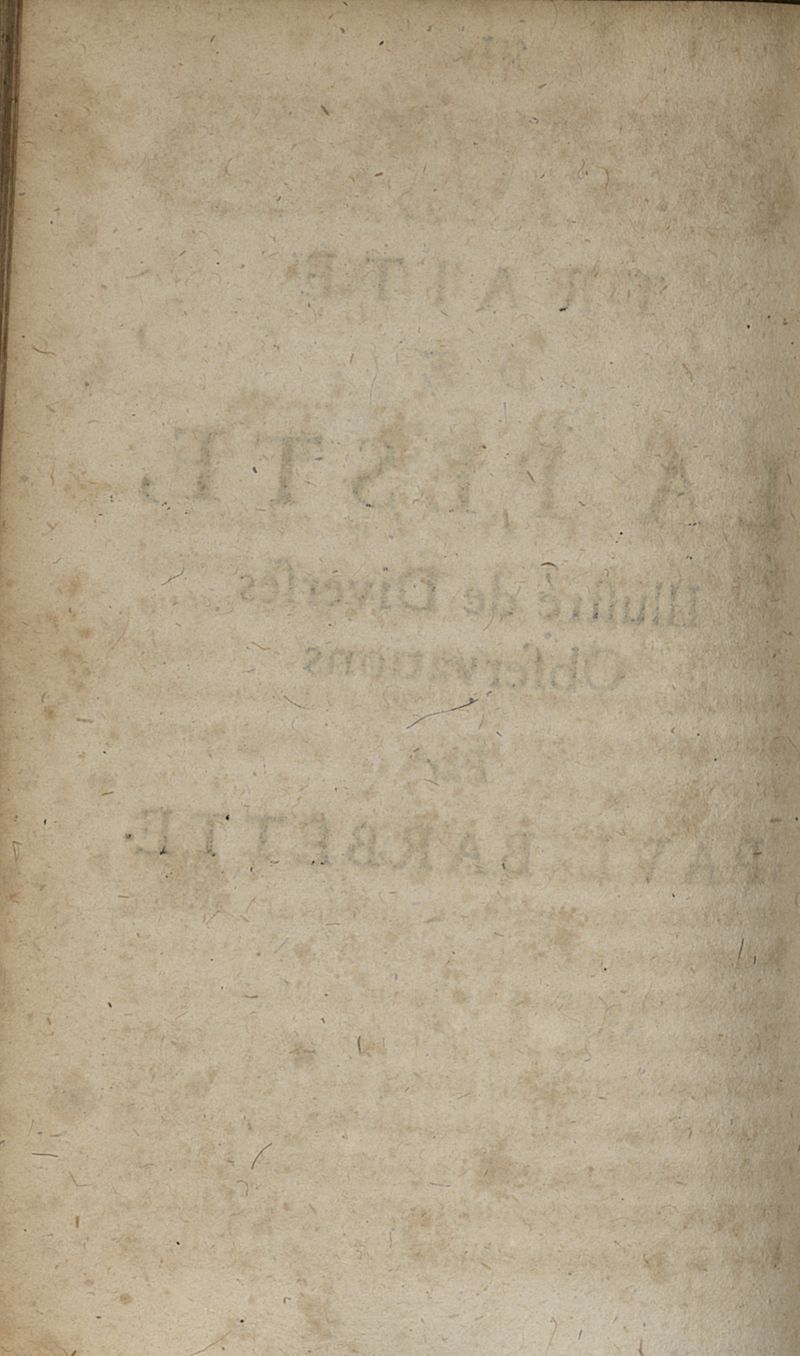 TRAITÉ
DE
LA PESTE,
Illustré de Diverses
Observations
Par
PAUL BARBETTE.